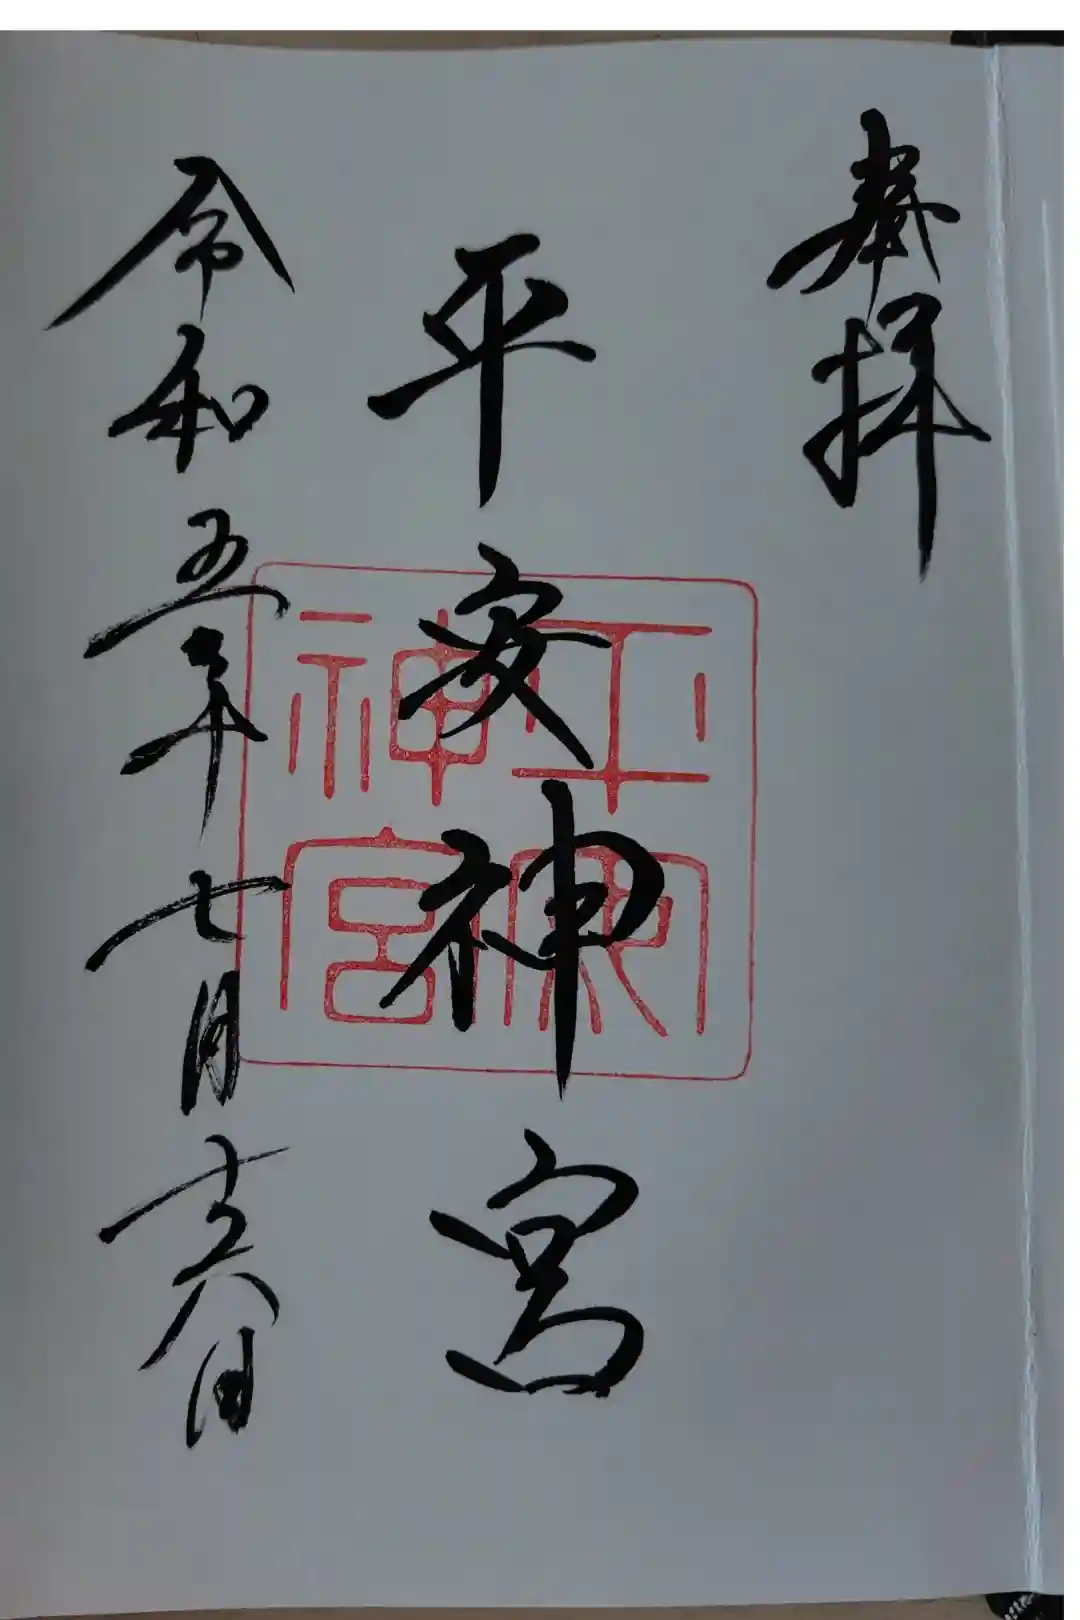 奉拝
平安神宮
令和五年七月十六日
平安
神宮